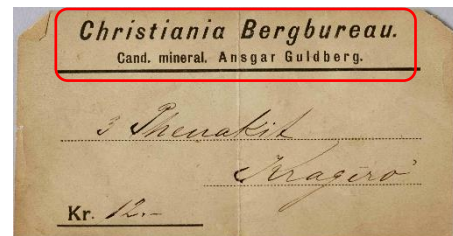 Christiania Bergbureau.
Cand. mineral. Ansgar Guldberg.
3 Phenakit
Kragerö
Kr. 12.-